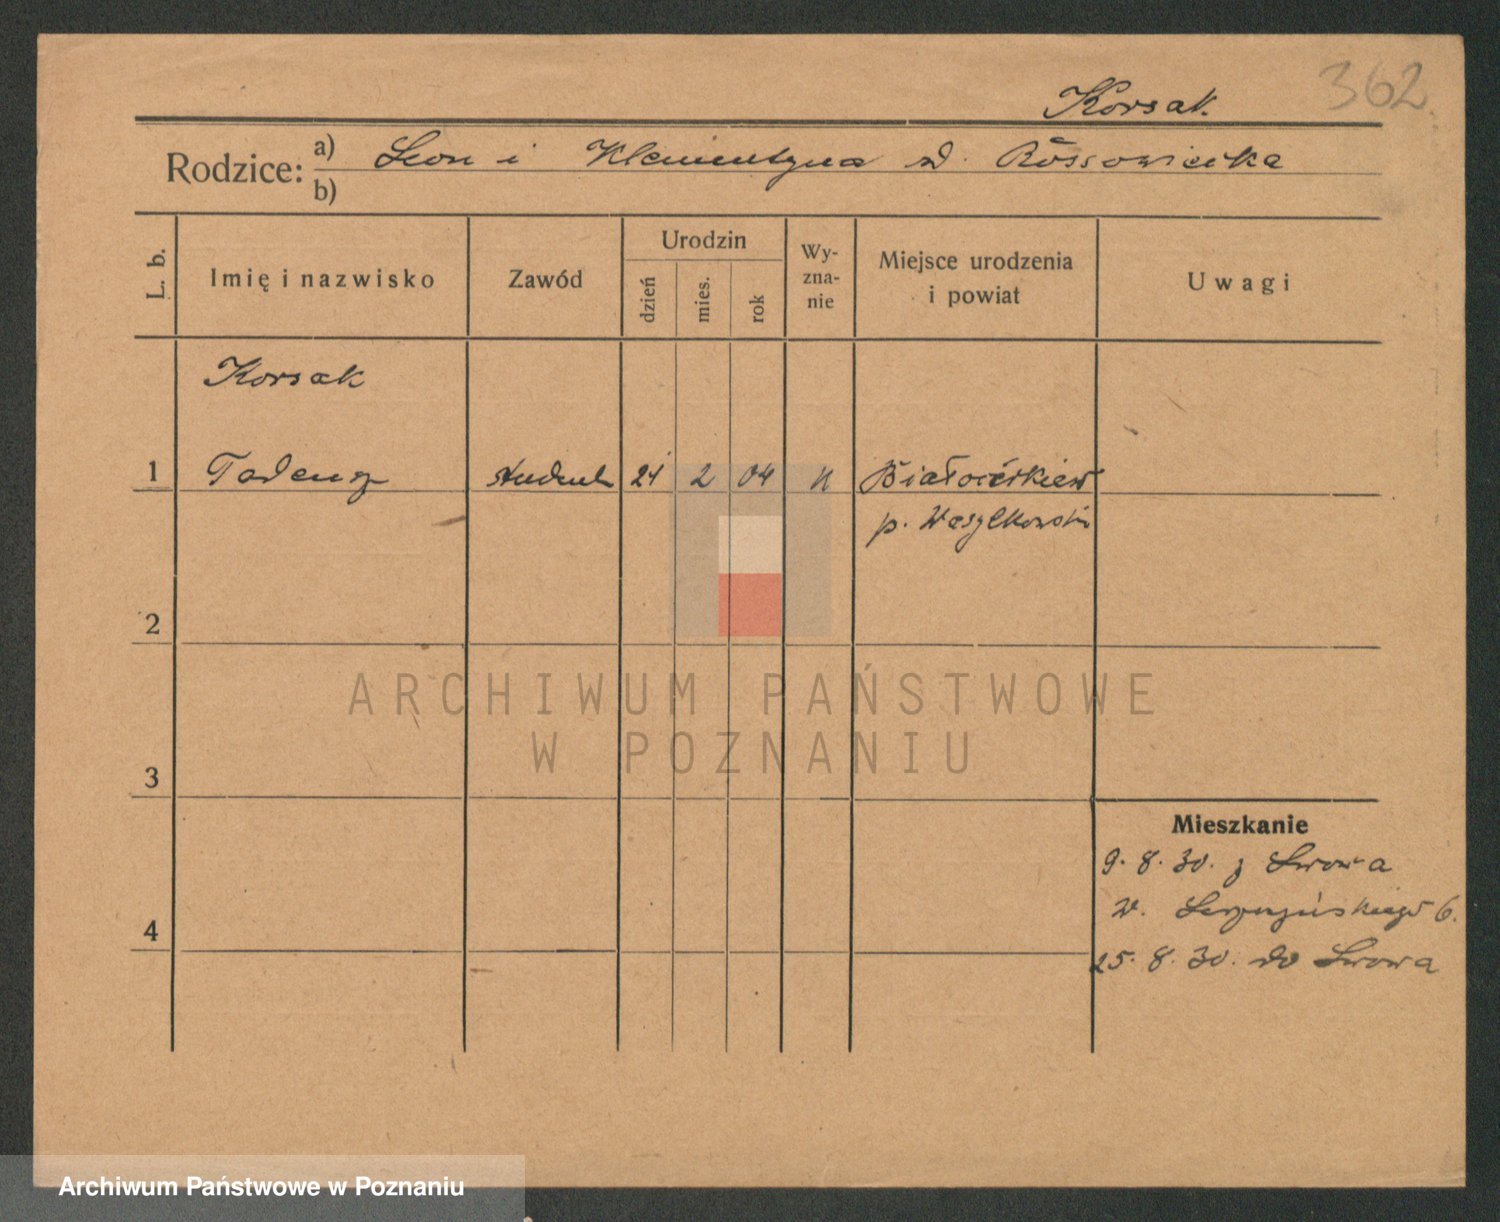 362
Korsak.
Rodzice: a) Leon i Klementyna d.
b)
L. b.
Imię i nazwisko
Zawód
Urodzin
dzień
mies.
rok
Wy-
zna-
nie
Miejsce urodzenia
i powiat
Uwagi
Korsak
1 Tadeusz student 21 2 04
p. Wasylkowski
2
3
4
Mieszkanie
9. 8. 30. z Lwowa
6.
25. 8. 30. do Lwowa
ARCHIWUM PAŃSTWOWE
W POZNANIU
Archiwum Państwowe w Poznaniu